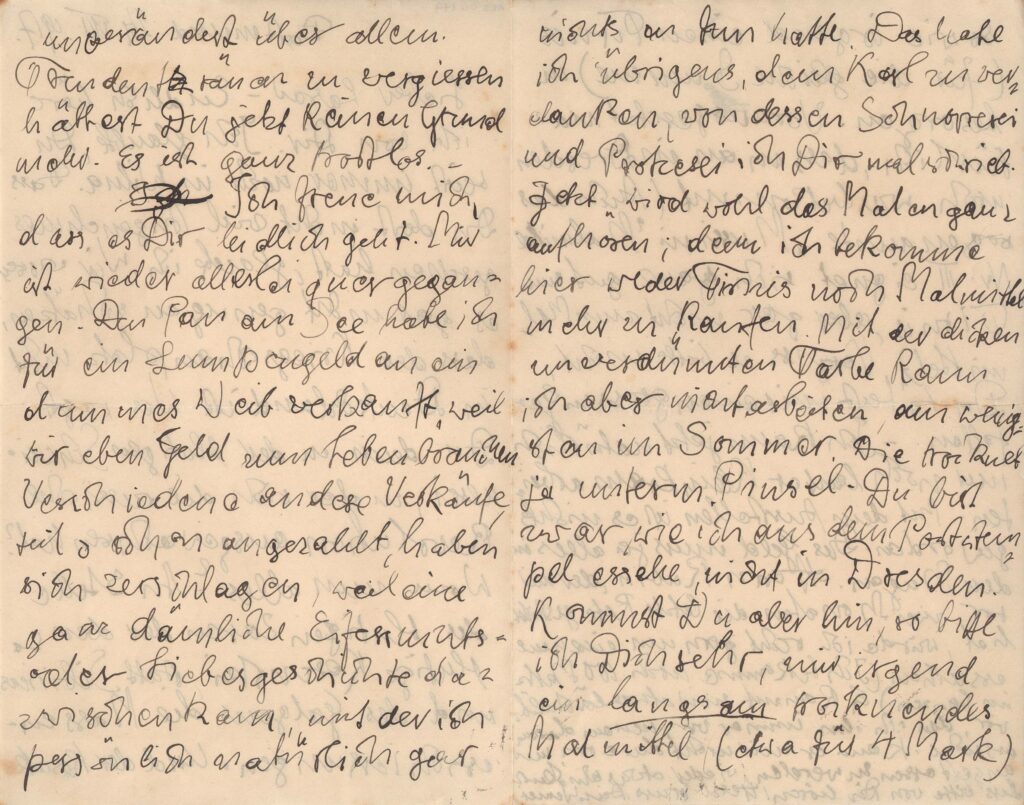 unverändert über allem.
Freudentränen zu vergiessen
hättest Du jetzt keinen Grund
mehr. Es ist ganz trostlos. –
Ich freue mich,
dass es Dir leidlich geht. Mir
ist wieder allerlei quer gegan=
gen. Den Pan am See habe ich
für ein Lumpengeld an ein
dummes Weib verkauft, weil
wir eben Geld zum Leben brauchen
Verschiedene andere Verkäufe,
teils schon angezahlt, haben
sich zerschlagen, weil eine
ganz dämliche Eifersuchts=
oder Liebesgeschichte da=
zwischen kam, mit der ich
persönlich natürlich gar
nichts zu tun hatte. Das habe
ich übrigens, dem Karl zu ver=
danken, von dessen
und Protzerei ich Dir mal schrieb.
Jetzt wird wohl das Malen ganz
aufhören; denn ich bekomme
hier weder Firnis noch Malmittel
mehr zu kaufen. Mit der dicken
unverdünnten Farbe kann
ich aber nicht arbeiten, am wenig=
sten im Sommer. Die trocknet
ja unterm Pinsel. Du bist
zwar, wie ich aus dem Poststem=
pel ersehe, nicht in Dresden.
Kommst Du aber hin, so bitte
ich Dich sehr, mir irgend
ein langsam trocknendes
Malmittel (etwa für 4 Mark)